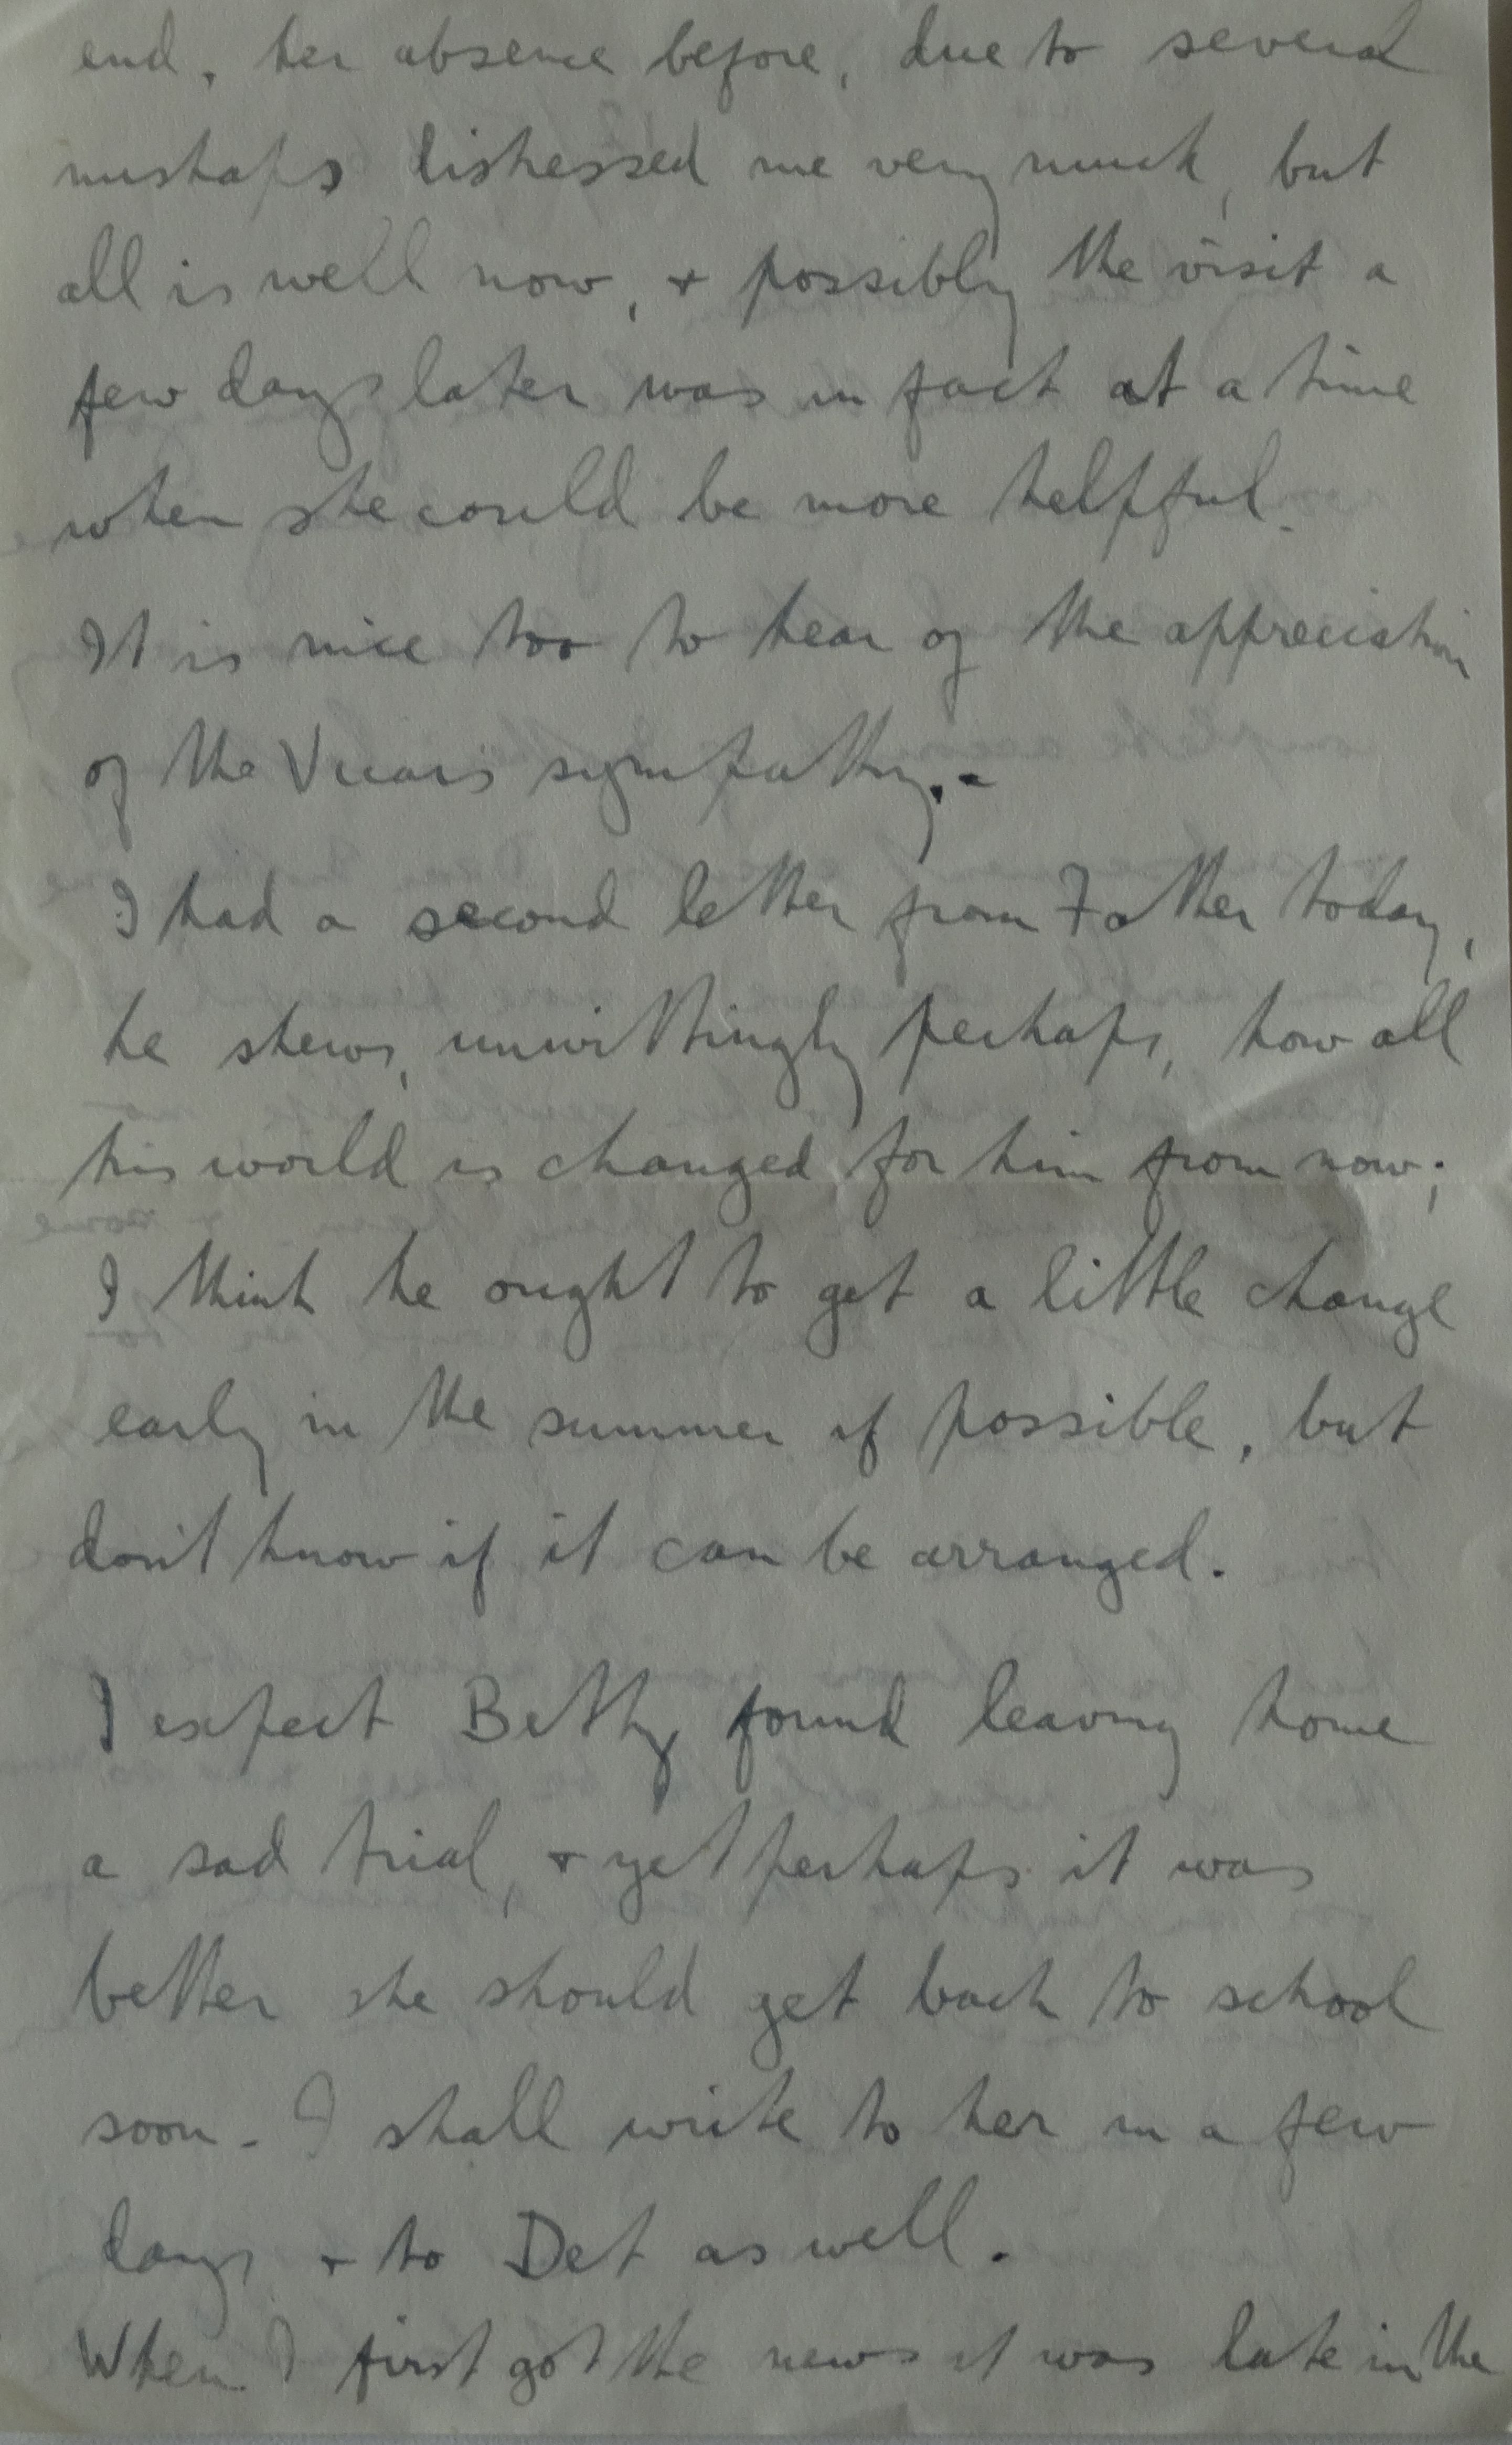 end, her absence before, due to several
mishaps distressed me very much, but
all is well now, + possibly the visit a
few days later was in fact at a time
when she could be more helpful.
It is nice too to hear of the appreciation
of the Vicar's sympathy. -
I had a second letter from Father today,
he shews, unwittingly perhaps, how all
his world is changed for him from now;
I think he ought to get a little change
early in the summer if possible, but
don't know if it can be arranged.
I expect Betty found leaving home
a sad trial, + yet perhaps it was
better she should get back to school
soon. I shall write to her in a few
days + to Det as well.
When I first got the news it was late in the